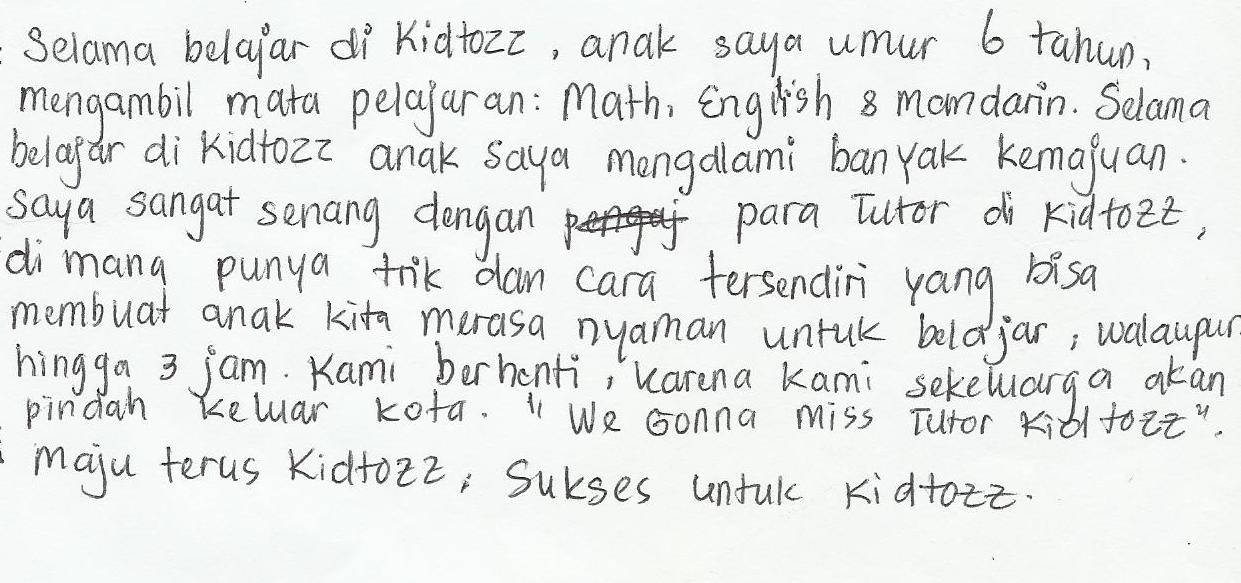 Selama belajar di Kidtozz, anak saya umur 6 tahun,
mengambil mata pelajaran: Math, English & mandarin. Selama
belajar di Kidtozz anak saya mengalami banyak kemajuan.
saya sangat senang dengan pengaj para Tutor di Kidtozz,
di mana punya trik dan cara tersendiri yang bisa
membuat anak kita merasa nyaman untuk belajar, walaupun
hingga 3 jam. Kami berhenti, karena kami sekeluarga akan
pindah keluar kota. "We Gonna miss Tutor Kidtozz".
maju terus Kidtozz, Sukses untuk Kidtozz.